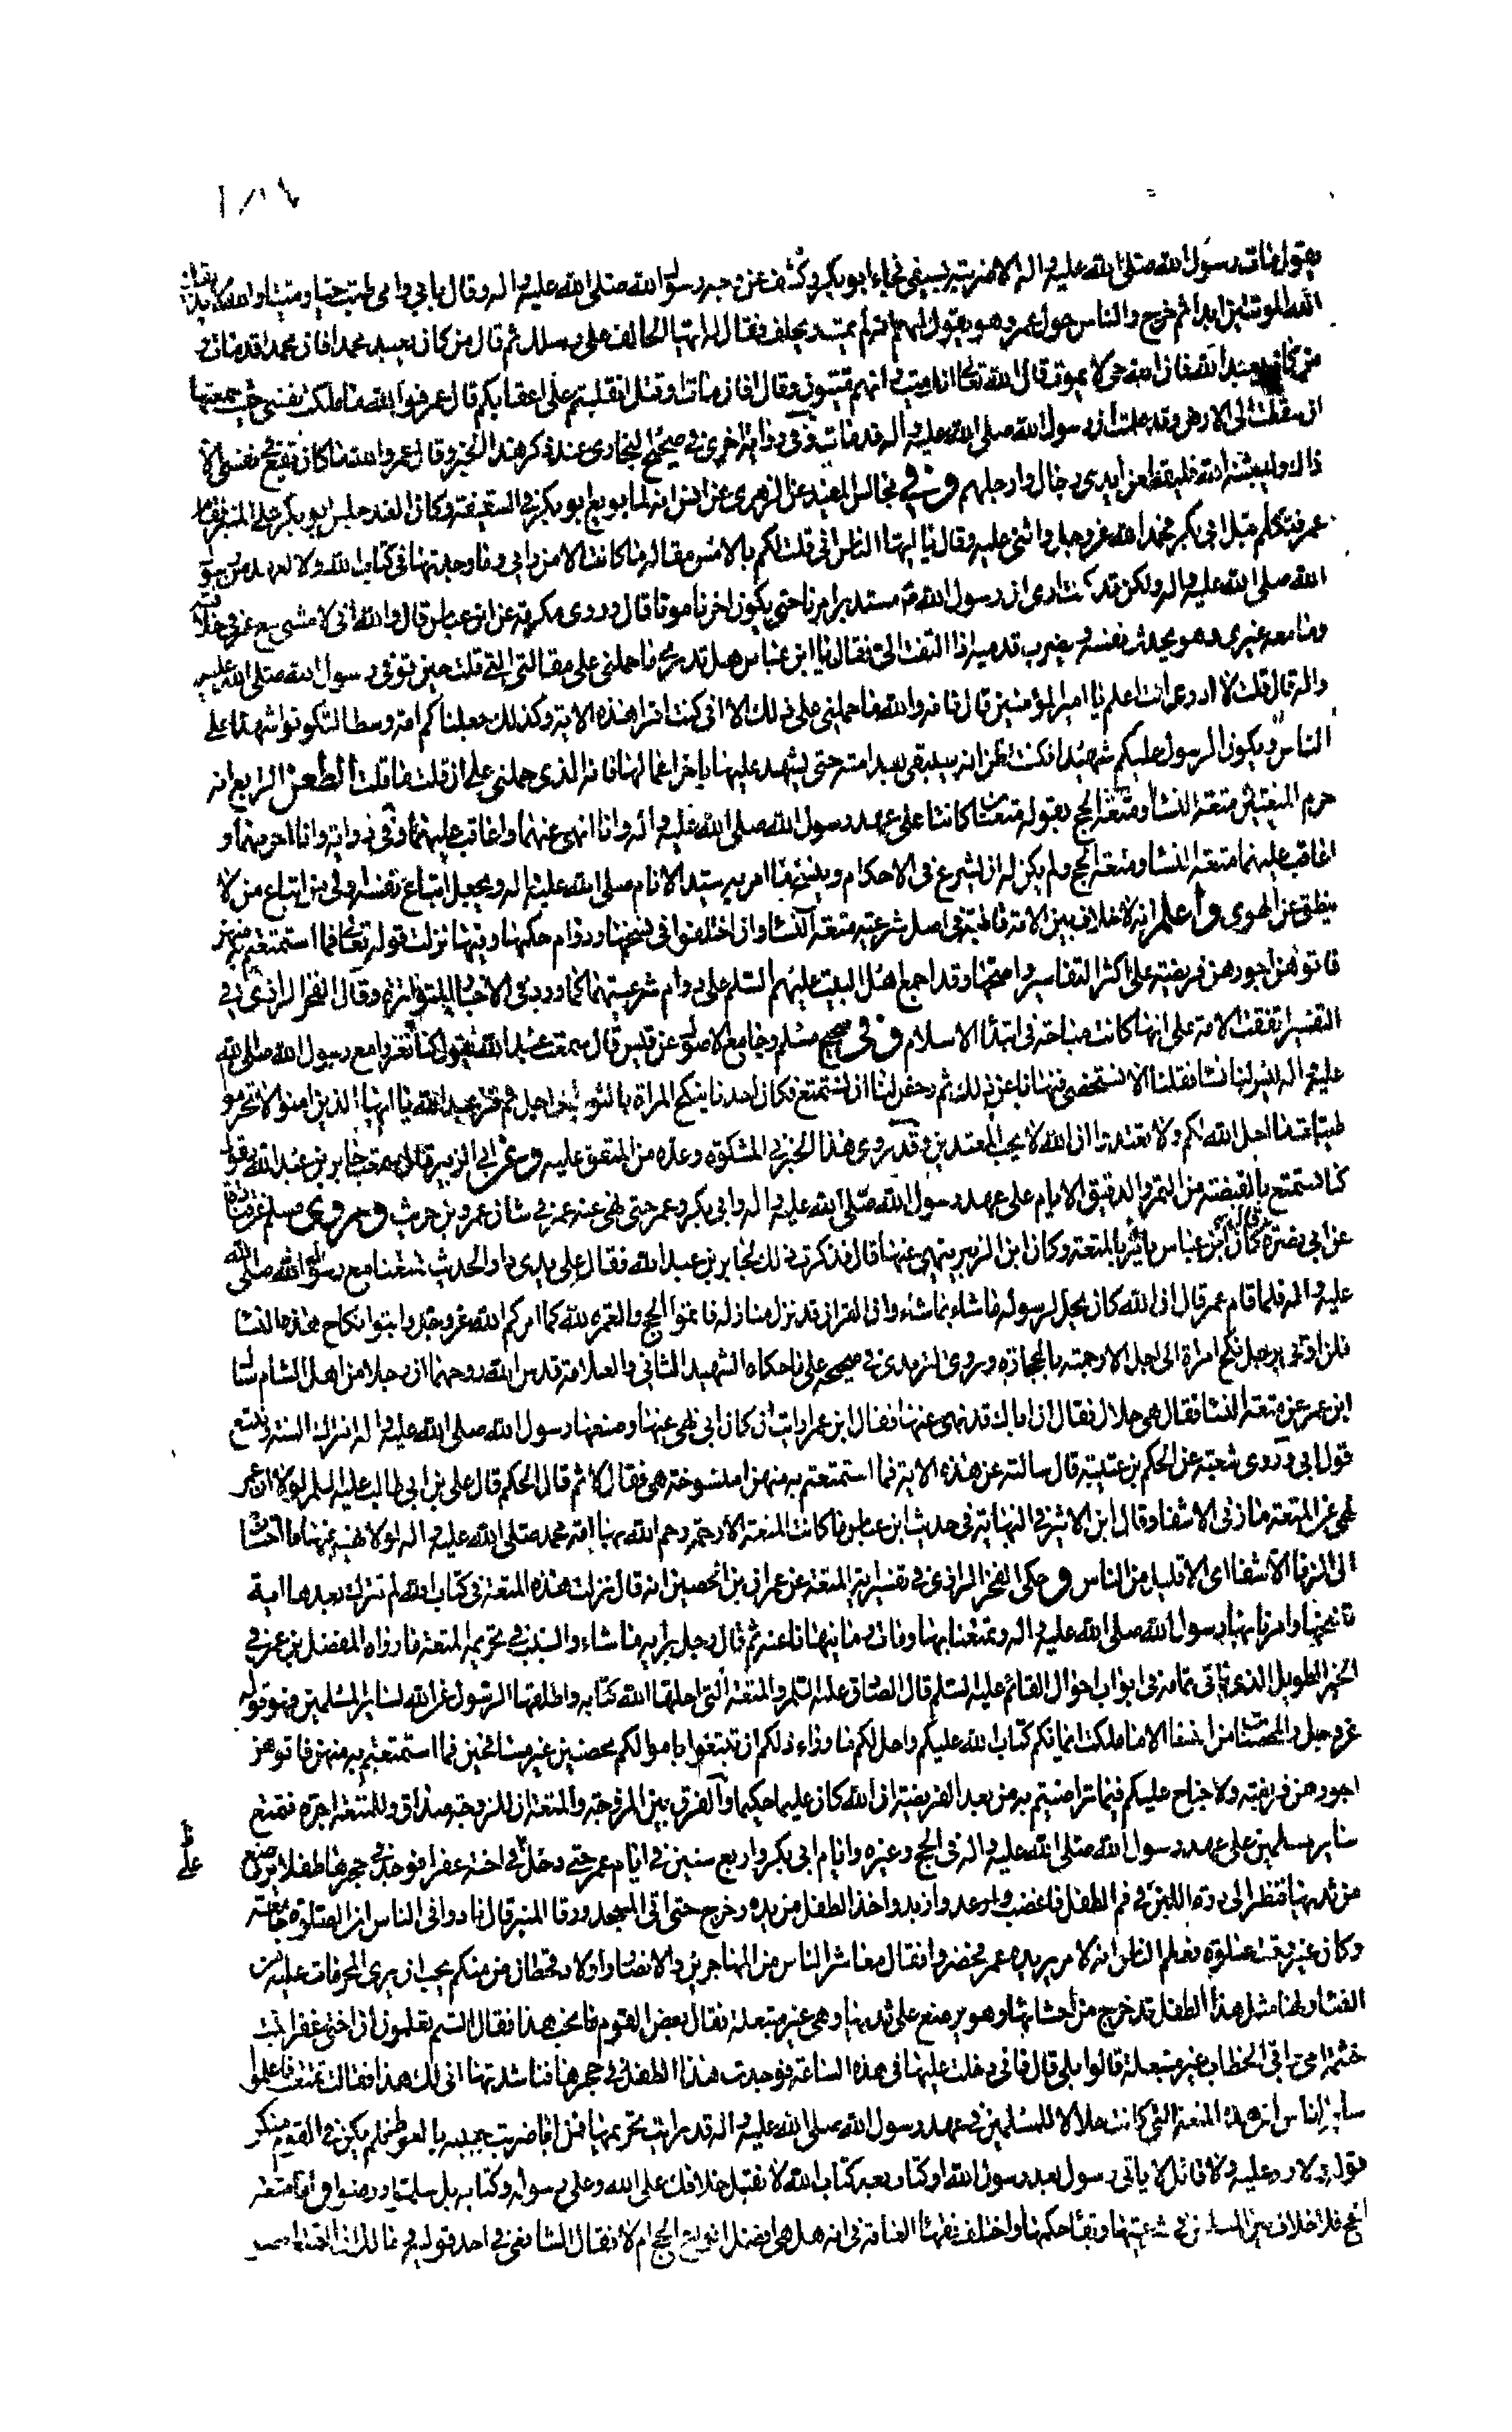 ١٨٦
يقول مات رسول الله صلى الله عليه واله الا ضربته بسيفي فجاء ابو بكر وكشف عن وجه رسول الله صلى الله عليه واله وقال بابي وامي طبت حيا وميتا والله لا يذيقك
الله الموتتين ابدا ثم خرج والناس حول عمر وهو يقول لهم انه لم يمت ويحلف فقال له ايها الحالف على رسلك ثم قال من كان يعبد محمدا فان محمدا قد مات و
من كان يعبد الله فان الله حي لا يموت قال الله تعالى انك ميت وانهم ميتون وقال افان مات او قتل انقلبتم على اعقابكم قال عمر فوالله ما ملكت نفسي حيث سمعتها
ان سقطت الى الارض وقد علمت ان رسول الله صلى الله عليه واله قد مات وفي رواية اخرى في صحيح البخاري عند ذكر هذا الخبر وقال عمر والله ما كان يقع في نفسي الا
ذاك وليبعثنه الله فليقطعن ايدي رجال وارجلهم وفي مجالس المفيد عن الزهري عن انس انه لما بويع ابو بكر في السقيفة وكان الغد جلس ابو بكر على المنبر فقام
عمر فتكلم قبل ابي بكر فحمد الله عز وجل واثنى عليه وقال يا ايها الناس اني قلت لكم بالامس مقالة ما كانت الا من رايي وما وجدتها في كتاب الله ولا لعهد من رسول
الله صلى الله عليه واله ولكن قد كنت ارى ان رسول الله ص مستدبر امرنا حتى يكون اخرنا موتا قال وروى عكرمة عن ابن عباس قال والله اني لامشي مع عمر في خلافته
وما معه غيري وهو يحدث نفسه ويضرب قدميه اذا التفت الي فقال يا ابن عباس هل تدري ما حملني على مقالتي التي قلت حين توفي رسول الله صلى الله عليه
واله قال قلت لا ادري انت اعلم يا امير المؤمنين قال فانه والله ما حملني على ذلك الا اني كنت اقرا هذه الاية وكذلك جعلناكم امة وسطا لتكونوا شهداء على
الناس ويكون الرسول عليكم شهيدا فكنت اظن انه سيبقى بعد امته حتى يشهد عليها باخر اعمالها فانه الذي حملني على ان قلت ما قلت الطعن الرابع انه
حرم المتعتين متعة النسا ومتعة الحج بقوله متعتان كانتا على عهد رسول الله صلى الله عليه واله وانا انهى عنهما واعاقب عليهما وفي رواية وانا احرمهما و
اعاقب عليهما متعة النسا ومتعة الحج ولم يكن له ان يشرع في الاحكام وينسخ ما امر به سيد الانام صلى الله عليه واله ويجعل اتباع نفسه اولى من اتباع من لا
ينطق عن الهوى واعلم انه لا خلاف بين الامة قاطبة في اصل شرعية متعة النسا وان اختلفوا في نسخها ودوام حكمها وفيها نزلت قوله تعالى فما استمتعتم به منهن
فاتوهن اجورهن فريضة على اكثر التفاسير واصحها وقد اجمع اهل البيت عليهم السلم على دوام شرعيتهما كما ورد في الاخبار المتواترة وقال الفخر الرازي في
التفسير اتفقت الامة على انها كانت مباحة في ابتدا الاسلام وفي صحيح مسلم وجامع الاصول عن قيس قال سمعت عبد الله يقول كنا نغزوا مع رسول الله صلى الله
عليه واله ليس لنا نسا فقلنا الا نستخصي فنهانا عن ذلك ثم رخص لنا ان نستمتع فكان احدنا ينكح المراة بالثوب الى اجل ثم قرء عبد الله يا ايها الذين امنوا لا تحرموا
طيبات ما احل الله لكم ولا تعتدوا ان الله لا يحب المعتدين وقد روى هذا الخبر في المشكوة وعده من المتفق عليه وعن ابي الزبير قال سمعت جابر بن عبد الله يقول
كنا نستمتع بالقبضة من التمر والدقيق الايام على عهد رسول الله صلى الله عليه واله وابي بكر وعمر حتى نهى عنه عمر في شان عمرو بن حريث وروى مسلم عن قتادة
عن ابي نضرة قال كان ابن عباس يامر بالمتعة وكان ابن الزبير ينهى عنها قال فذكرت ذلك لجابر بن عبد الله فقال على يدي دار الحديث تمتعنا مع رسول الله صلى الله
عليه واله فلما قام عمر قال ان الله كان يحل لرسوله ما شاء بما شاء وان القران قد نزل منازله فاتموا الحج والعمرة لله كما امركم الله عز وجل وابتوا نكاح هذه النسا
فلن اوتى برجل نكح امراة الى اجل الا رجمته بالحجارة وروى الترمذي في صحيحه على ما حكاه الشهيد الثاني والعلامة قدس الله روحهما ان رجلا من اهل الشام سال
ابن عمر عن متعة النسا فقال هي حلال فقال ان اباك قد نهى عنها فقال ابن عمر ارايت ان كان ابي نهى عنها وصنعها رسول الله صلى الله عليه واله اتترك السنة وتتبع
قول ابي وروى شعبة عن الحكم بن عتيبة قال سالته عن هذه الاية فما استمتعتم به منهن امنسوخة هي فقال لا ثم قال الحكم قال علي بن ابي طالب عليه السلم لولا ان عمر
نهى عن المتعة ما زنى الا شفا وقال ابن الاثير في النهاية في حديث ابن عباس ما كانت المتعة الا رحمة رحم الله بها امة محمد صلى الله عليه واله لولا نهيه عنها ما احتاج
الى الزنا الا شفا اي الا قليل من الناس وحكى الفخر الرازي في تفسير اية المتعة عن عمران بن الحصين انه قال نزلت هذه المتعة في كتاب الله لم تنزل بعدها اية
تنسخها وامرنا بها رسول الله صلى الله عليه واله وتمتعنا بها ومات وما نهانا عنه ثم قال رجل برايه ما شاء والسبب في تحريمه المتعة ما رواه المفضل بن عمر في
الخبر الطويل الذي ياتي بتمامه في ابواب احوال القائم عليه السلم قال الصادق عليه السلم والمتعة التي احلها الله في كتابه واطلقها الرسول عن الله لسائر المسلمين فهو قوله
عز وجل والمحصنات من النسا الا ما ملكت ايمانكم كتاب الله عليكم واحل لكم ما وراء ذلكم ان تبتغوا باموالكم محصنين غير مسافحين فما استمتعتم به منهن فاتوهن
اجورهن فريضة ولا جناح عليكم فيما تراضيتم به من بعد الفريضة ان الله كان عليما حكيما والفرق بين المزوجة والمتعة ان للزوجة صداق وللمتعة اجرة فتمتع
ساير المسلمين على عهد رسول الله صلى الله عليه واله في الحج وغيره وايام ابي بكر واربع سنين في ايام عمر حتى دخل على اخته عفرا فوجد في حجرها طفلا يرضع
من ثديها فنظر الى درة اللبن في فم الطفل فاغضب وارعد وازبد واخذ الطفل من يده وخرج حتى اتى المسجد ورقا المنبر قال نادوا في الناس ان الصلوة جامعة
وكان غير وقت صلوة فعلم الناس انه لامر يريده عمر فحضروا فقال معاشر الناس من المهاجرين والانصار واولاد قحطان من منكم يحب ان يرى المحرمات عليه من
النسا ولها مثل هذا الطفل قد خرج من احشائها وهو يرضع على ثديها وهي غير متبعلة فقال بعض القوم ما نحب هذا فقال الستم تعلمون ان اختي عفرا بنت
خنتمة امي وابي الخطاب غير متبعلة قالوا بلى قال فاني دخلت عليها في هذه الساعة فوجدت هذا الطفل في حجرها فناشدتها انى لك هذا فقالت تمتعت فاعلموا
ساير الناس ان هذه المتعة التي كانت حلالا للمسلمين في عهد رسول الله صلى الله عليه واله قد رايت تحريمها فمن ابى ضربت جنبيه بالسوط فلم يكن في القوم منكر
قوله ولا راد عليه ولا قائل لا ياتي رسول بعد رسول الله او كتاب بعد كتاب الله لا نقبل خلافك على الله وعلى رسوله وكتابه بل سلموا ورضوا واما متعة
الحج فلا خلاف بين المسلمين في شرعيتها وبقاء حكمها واختلف فقهاء العامة في انه هل هي افضل انواع الحج ام لا فقال الشافعي في احد قوليه ومالك